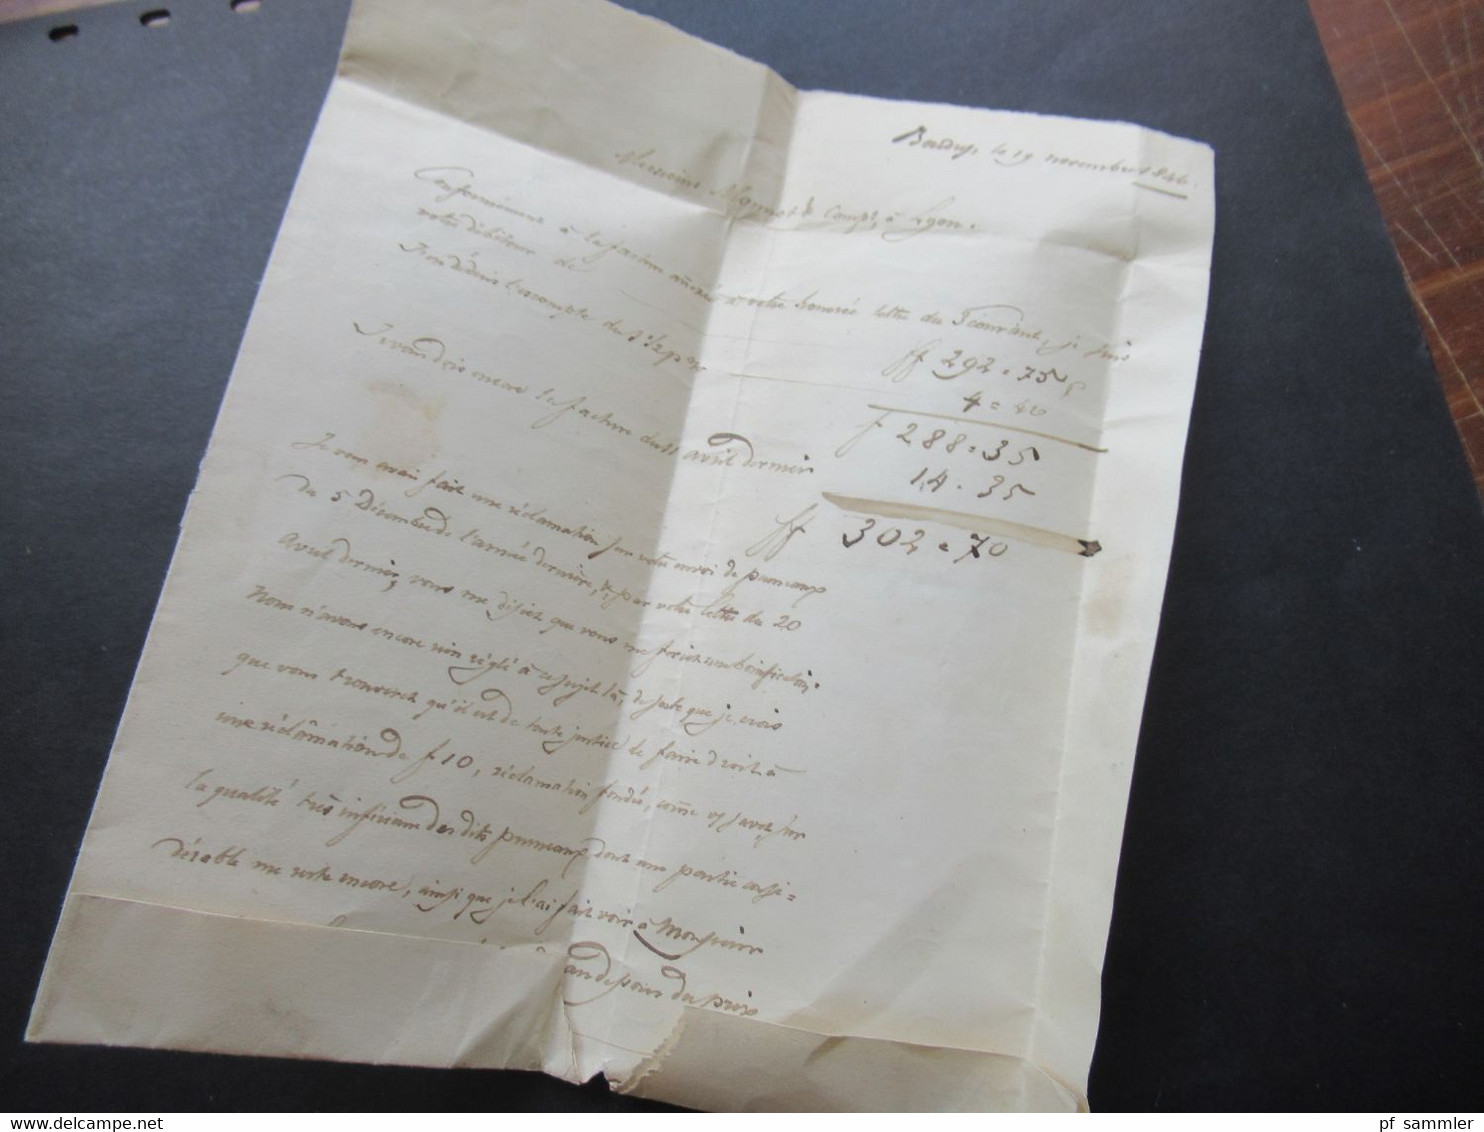 le 19 novembre 1846.
Messieurs & Comp.e, à Lyon.
Conformément à la facture annexée à votre honorée lettre du 3 courant, je suis
votre débiteur de ff 292 = 75
J'en déduis l'escompte du 4 = 40
f 288 = 35
Je vous dois encore la facture du avril dernier 14 = 35
ff 302 = 70
Je vous avais fait une réclamation sur votre envoi de pruneaux
du 5 Décembre de l'année dernière, & par votre lettre du 20
avril dernier, vous me disiez que vous me feriez une bonification.
Nous n'avons encore rien réglé à ce sujet là, de sorte que je crois
que vous trouverez qu'il est de toute justice de faire droit à
une réclamation de f 10, réclamation fondée, comme vs savez, sur
la qualité très inférieure des dits pruneaux, dont une partie consi=
dérable me reste encore, ainsi que je l'ai fait voir à Monsieur